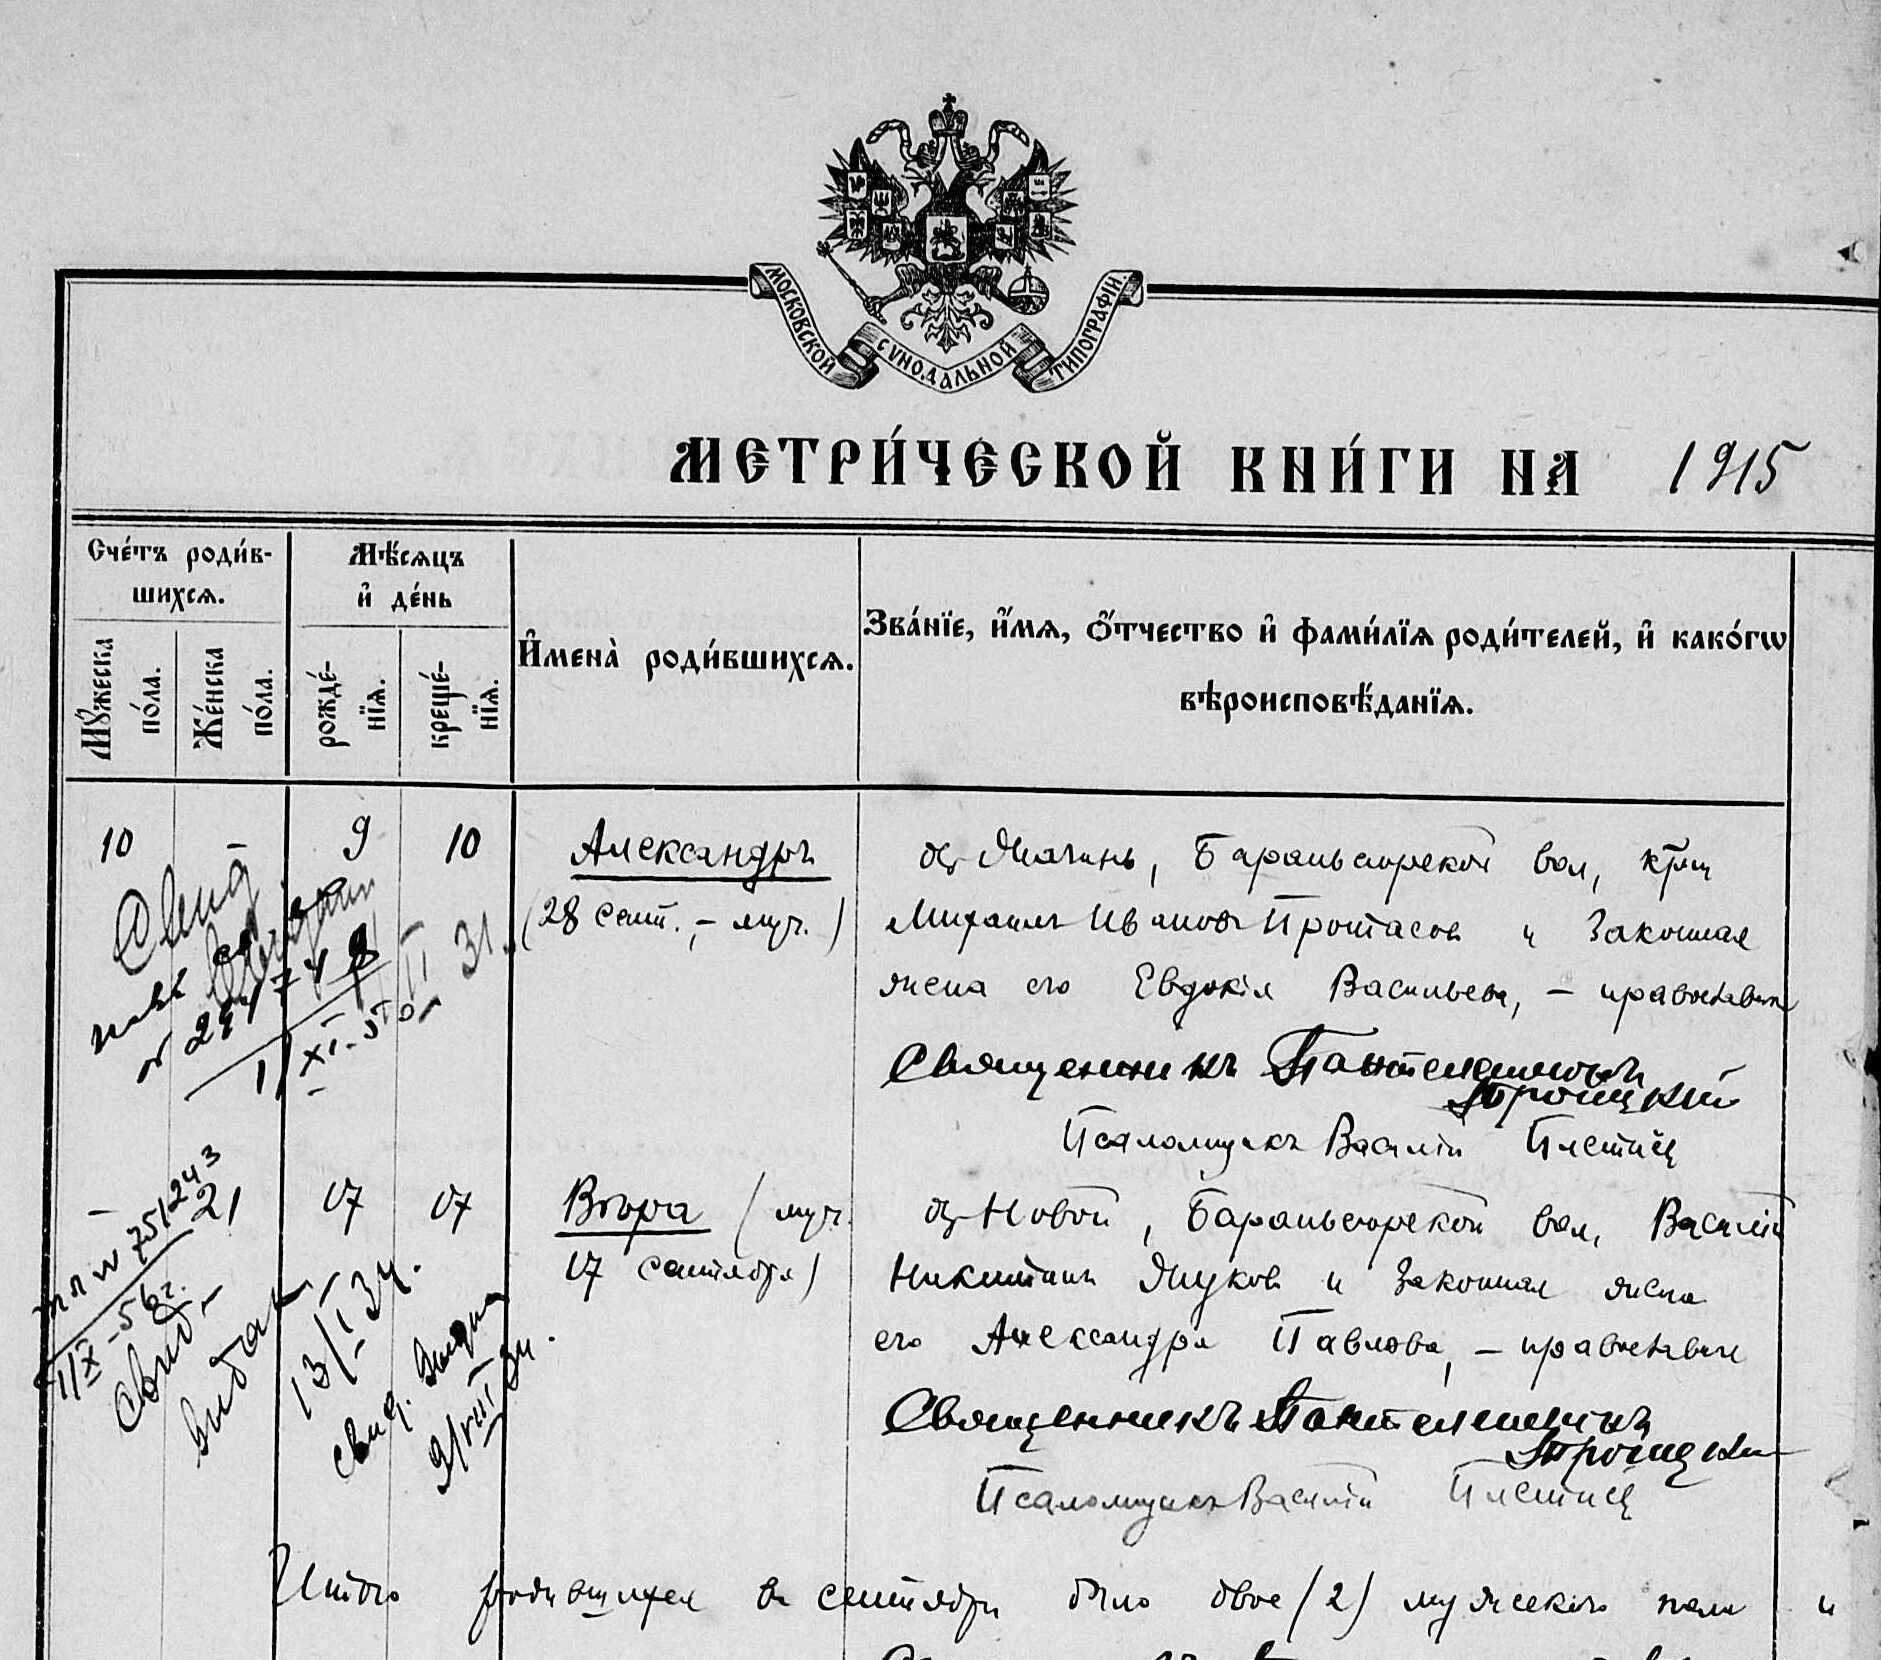 МОСКОВСКОЙ СѴНОДАЛЬНОЙ ТИПОГРАФІИ.
МЕТРИ́ЧЕСКОЙ КНИ́ГИ НА 1915
Сче́тъ роди́в-
шихсѧ.
Мѣ́сѧцъ
и҆ де́нь
И҆мена̀ роди́вшихсѧ.
Зва́нїе, и҆́мѧ, ѻ҆́тчество и҆ фами́лїѧ роди́телей, и҆ како́гѡ
вѣроисповѣ́данїѧ.
Мꙋ́жеска
по́ла.
Же́нска
по́ла.
рожде́-
нїѧ.
креще́-
нїѧ.
10 9 10 Александръ
(28 сент., – муч.)
вол, крт
Михаилъ Ивановъ Протасовъ и законная
жена его Евдокія Васильева, – православн
Священникъ Пантелеимонъ
Троицкій
Псаломщикъ Василій
– 21 17 17 Вѣра (муч.
17 сентября)
Новой, вол, Василій
Никитинъ Жуковъ и законная жена
его Александра Павлова, – православн
Священникъ Пантелеимонъ
Троицкій
Псаломщикъ Василій
Свид
XI
31.
75/243
56 г.
Свид
выдан
13/I 34.
свид. выдан
9/VIII 34.
Итого родившихся въ сентябрѣ было двое (2) мужского пола и